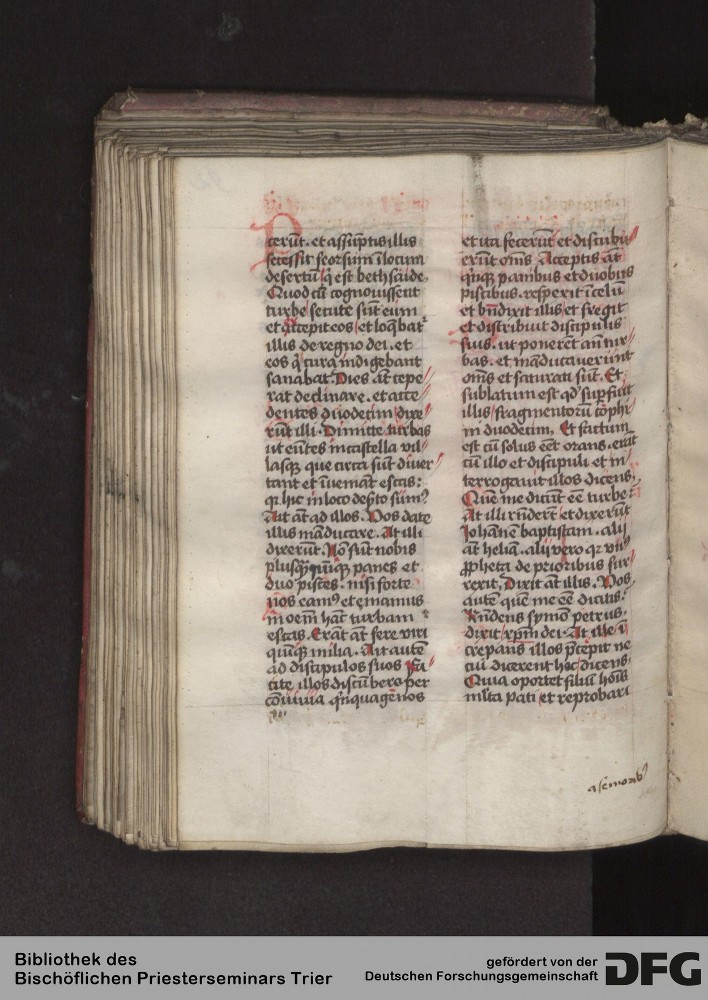 cerūt. et assūptis illis
secessit seorsum ī locum
desertū q̄ est bethsaide.
Quod cū cognouissent
turbe secute sūt eum
et excepit eos et loq̄bat᷑
illis de regno dei. et
eos q̄ cura indigebant
sanabat. Dies āt cepe
rat declinare. et acce
dentes duodecim dixe
rūt illi. Dimitte turbas
ut eūtes in castella vil
lasq̄ que circa sūt diuer
tant et īueniāt escas:
qr hic in loco desto sum᷒
Ait āt ad illos. Vos date
illis māducare. At illi
dixerūt. Nō sūt nobis
plusq̄ quīq̄ panes et
duo pisces. nisi forte
nos eam᷒ et emamus
in oēm hāc turbam
escas. Erāt āt fere viri
quīq̄ milia. Ait autē
ad discipulos suos Fa
cite illos discūbere per
cōuiuia q̄nquagenos
et ita fecerūt et discubu
erūt om̄s. Acceptis āt
q̄nq̄ panibus et duobus
piscibus. resp̄exit ī celū
et bn̄dixit illis et fregit
et distribuit discipulis
suis. ut ponerēt an̄ tur
bas. et māducauerunt
om̄s et saturati sūt. Et
sublatum est qd̄ sup̄fuit
illis fragmentorū cophi
ni duodecim. Et factum
est cū solus eēt orans. erāt
cū illo et discipuli et in
terrogauit illos dicens.
Quē me dicūt eē turbe
At illi rn̄derūt et dixerūt
Iohānē baptistam. alij
āt heliā. alij vero qr vn᷒
ꝓpheta de prioribus sur
rexit. Dixit āt illis. Vos
autē quē me eē dicitis.
Rn̄dens symō petrus.
dixit xp̄m dei. At ille ī
crepans illos p̄cepit ne
cui dicerent hoc dicens.
Quia oportet filiū hoīs
ml̄ta pati et reprobari
Bibliothek des
Bischöflichen Priesterseminars Trier
gefördert von der
Deutschen Forschungsgemeinschaft
DFG